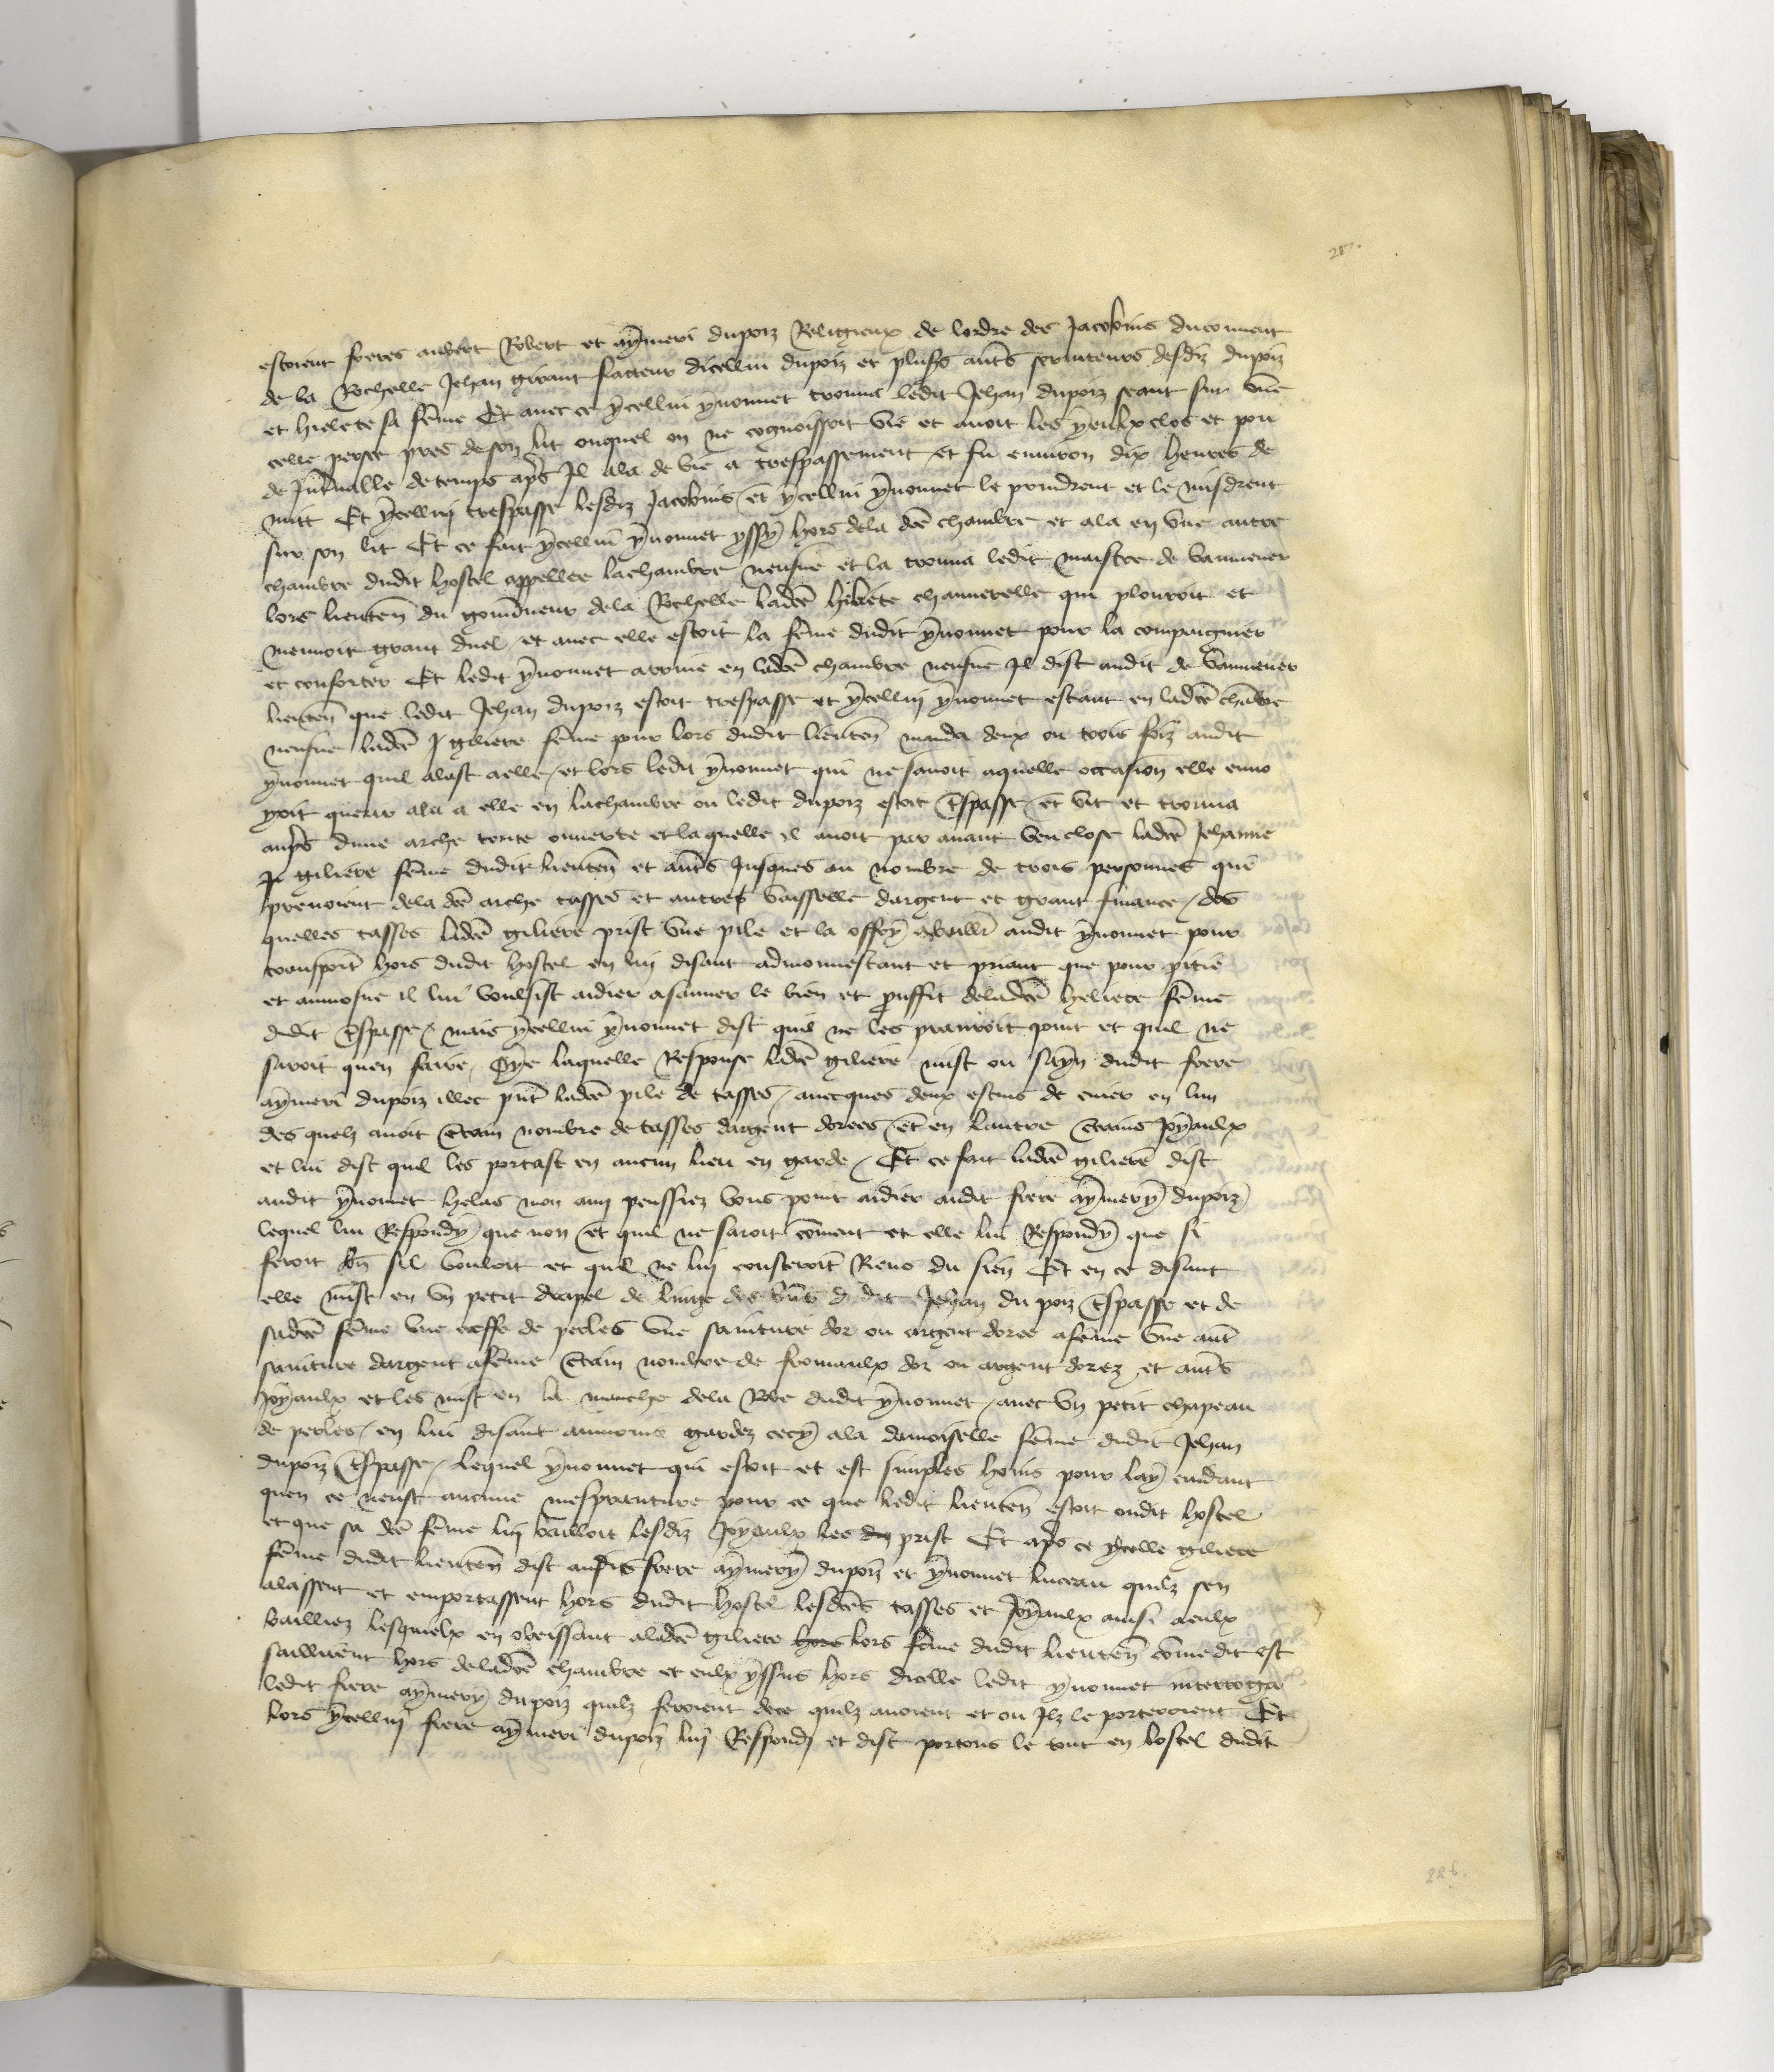 estoient freres aubert Robert et aymeri dupoiz Religieux de lordre des Jacobins du couvent
de la Rochelle Jehan girant facteur dicellui dupoiz et plusrs autrs serviteurs desdiz dupoiz
et hielete sa feme Et avec ce ycellui yvonnet trouva ledit Jehan dupoiz seant sur une
selle persee pres de son lit onquel on ne cognoissoit vie et avoit les yeulx clos et pou
de Jntrvalle de temps aprs Jl ala de vie a trespassement et fu environ dix heures de
nuit Et ycelluy trespasse lesdiz Jacobins et ycellui yvonnet le prindrent et le misdrent
sur son lit Et ce fait ycellui yvonnet yssy hors dela dce chambre et ala en une autre
chambre dudit hostel appellee lachambre neufve et la trouva ledit maistre de
lors lieuten du govneur dela Rochelle ladce hiliete chauverelle qui plouroit et
menoit grant duel et avec elle estoit la feme dudit yvonnet pour la compaignier
et conforter Et ledit yvonnet arrive en ladce chambre neufve Jl dist audit de
lieuten que ledit Jehan dupoiz estoit trespasse et ycelluy yvonnet estant en ladce chabre
neufve ladce J giliere feme pour lors dudit lieuten manda deux ou trois foiz audit
yvonnet quil alast aelle et lors ledit yvonnet qui ne savoit aquelle occasion elle envo
yoit querir ala a elle en lachambre ou ledit dupoiz estoit tspasse et vit et trouva
auprs dune arche toute ouverte et laquelle il avoit par avant veu close ladce Jehanne
giliere feme dudit lieuten et autrs Jusques au nombre de trois personnes qui
prenoient dela dce arche tasses et autres vaisselle dargent et grant finance des
quelles tasses ladce giliere prist une pile et la offry abaillr audit yvonnet pour
transportr hors dudit hostel en luy disant admonnestant et priant que pour pitie
et aumosne il lui voulsist aidier asauver le bien et prouffit deladce heliete feme
dudit tspasse mais ycellui yvonnet dist quil ne les prandroit point et quil ne
savoit quen faire Oye laquelle Response ladce giliere mist ou sayn dudit frere
aymeri dupoiz illec pnt ladce pile de tasses avecques deux estuis de cuier en lun
des quelz avoit crtain nombre de tasses dargent dorees et en lautre crtains Joyaulx
et lui dist quil les portast en aucun lieu en garde Et ce fait ladce giliere dist
audit yvonnet helas mon amy peussiez vous point aidier audit frere aymery dupoiz
lequel lui Respondy que non et quil ne savoit coment et elle lui Respondy que si
feroit bn sil vouloit et quil ne luy cousteroit Riens du sien Et en ce disant
elle mist en un petit drapel de linge des bns dudit Jehan du poiz tspasse et de
sadce feme une coeffe de perles une sainture dor ou argent doree afeme une autr
sainture dargent afeme crtain nombre de fromaulx dor ou argent dorez et autrs
Joyaulx et les mist en la manche dela Robe dudit yvonnet avec un petit chapeau
de perles en lui disant aumoins gardez cecy ala damoiselle feme dudit Jehan
dupoiz tspasse lequel yvonnet qui estoit et est simples homs pour lay cuidant
quen ce neust aucune mesprenture pour ce que ledit lieuten estoit oudit hostel
et que sa dce feme luy bailloit lesdiz Joyaulx les prist Et aprs ce ycelle giliere
feme dudit lieuten dist ausdits frere aymery dupoiz et yvonnet luceau quilz sen
alassent et emportassent hors dudit hostel lesdces tasses et Joyaulx ainsi aeulx
bailliez lesquelx en obeissant aladce giliere hors lors feme dudit lieuten come dit est
saillirent hors deladce chambre et eulx yssus hors dicelle ledit yvonnet interroga
ledit frere aymery dupoiz quilz feroient dece quilz avoient et ou Jlz le porteroient Et
lors ycelluy frere aymeri dupoiz luy Respondy et dist portons le tout en lostel dudit
226.